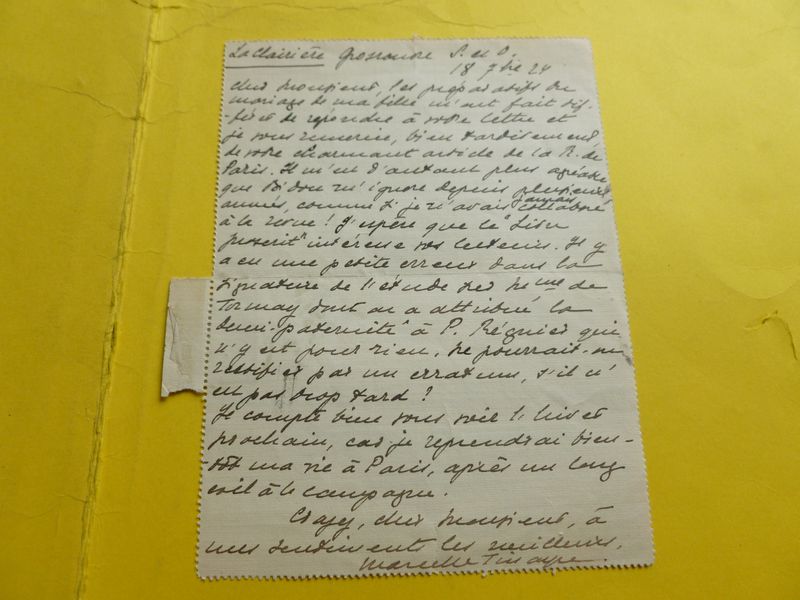 La Clairière Grosrouvre S. et O.
18 7bre 24
Cher Monsieur, les préparatifs du
mariage de ma fille m'ont fait dif-
-férer de répondre à votre lettre et
je vous remercie, bien tardivement,
de votre charmant article de la R. de
Paris. Il m'est d'autant plus agréable
que Bidou m'ignore depuis plusieurs
années, comme si je n'avais jamais collaboré
à la revue! J'espère que le "Livre
proscrit" intéresse vos lecteurs. Il y
a eu une petite erreur dans la
signature de l'étude sur Mme de
Tormay dont on a attribué la
demi-paternité à P. Régnier qui
n'y est pour rien. Ne pourrait-on
rectifier par un erratum, s'il n'
est pas trop tard?
Je compte bien vous voir l'hiver
prochain, car je reprendrai bien-
-tôt ma vie à Paris, après un long
exil à la campagne.
Croyez, cher Monsieur, à
mes sentiments les meilleurs.
Marcelle Tinayre